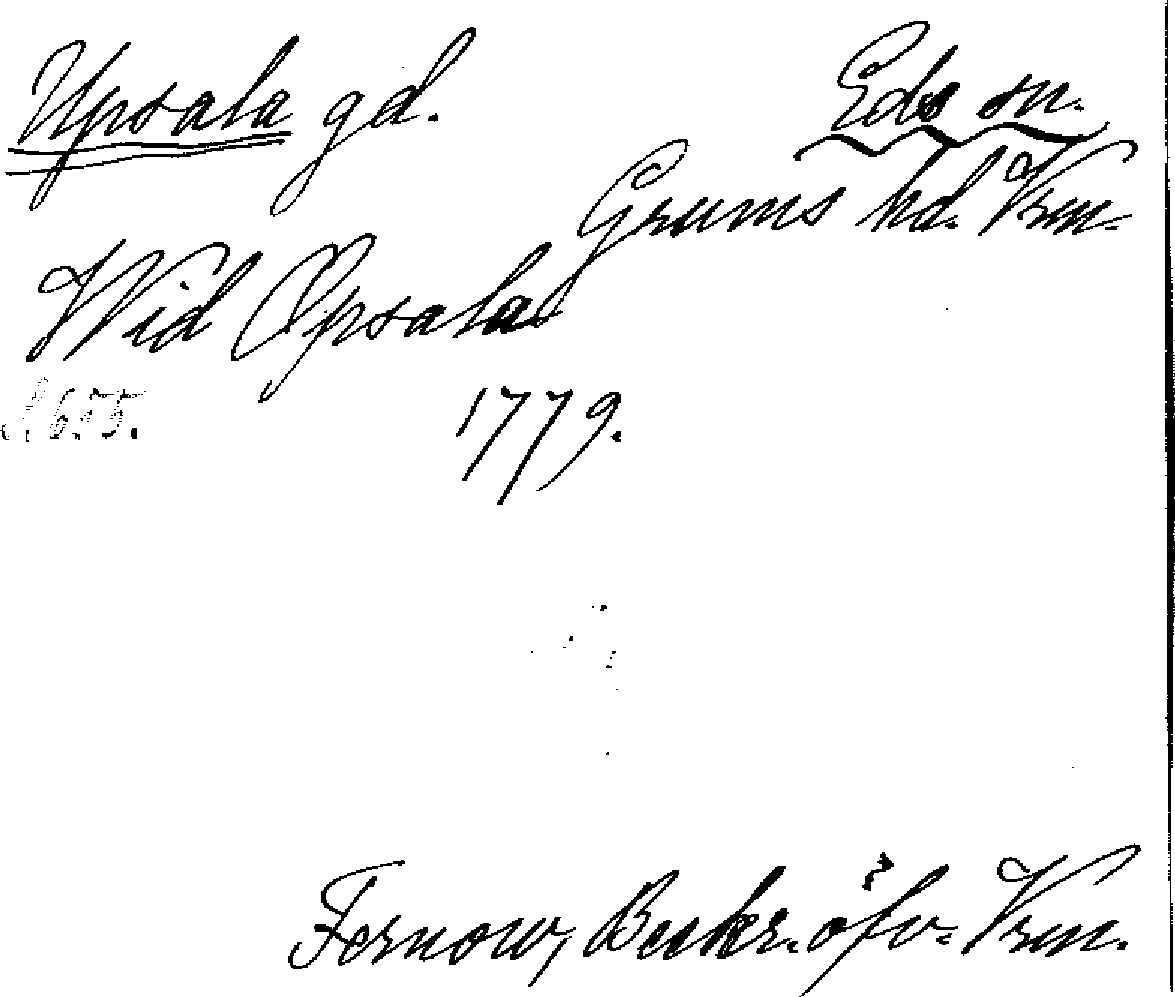 Upsala gd. Eds sn.
Grums hd. Vrm.
Wid Opsala
S. 655. 1779.
Fernow, Beskr. öfv. Vrm.